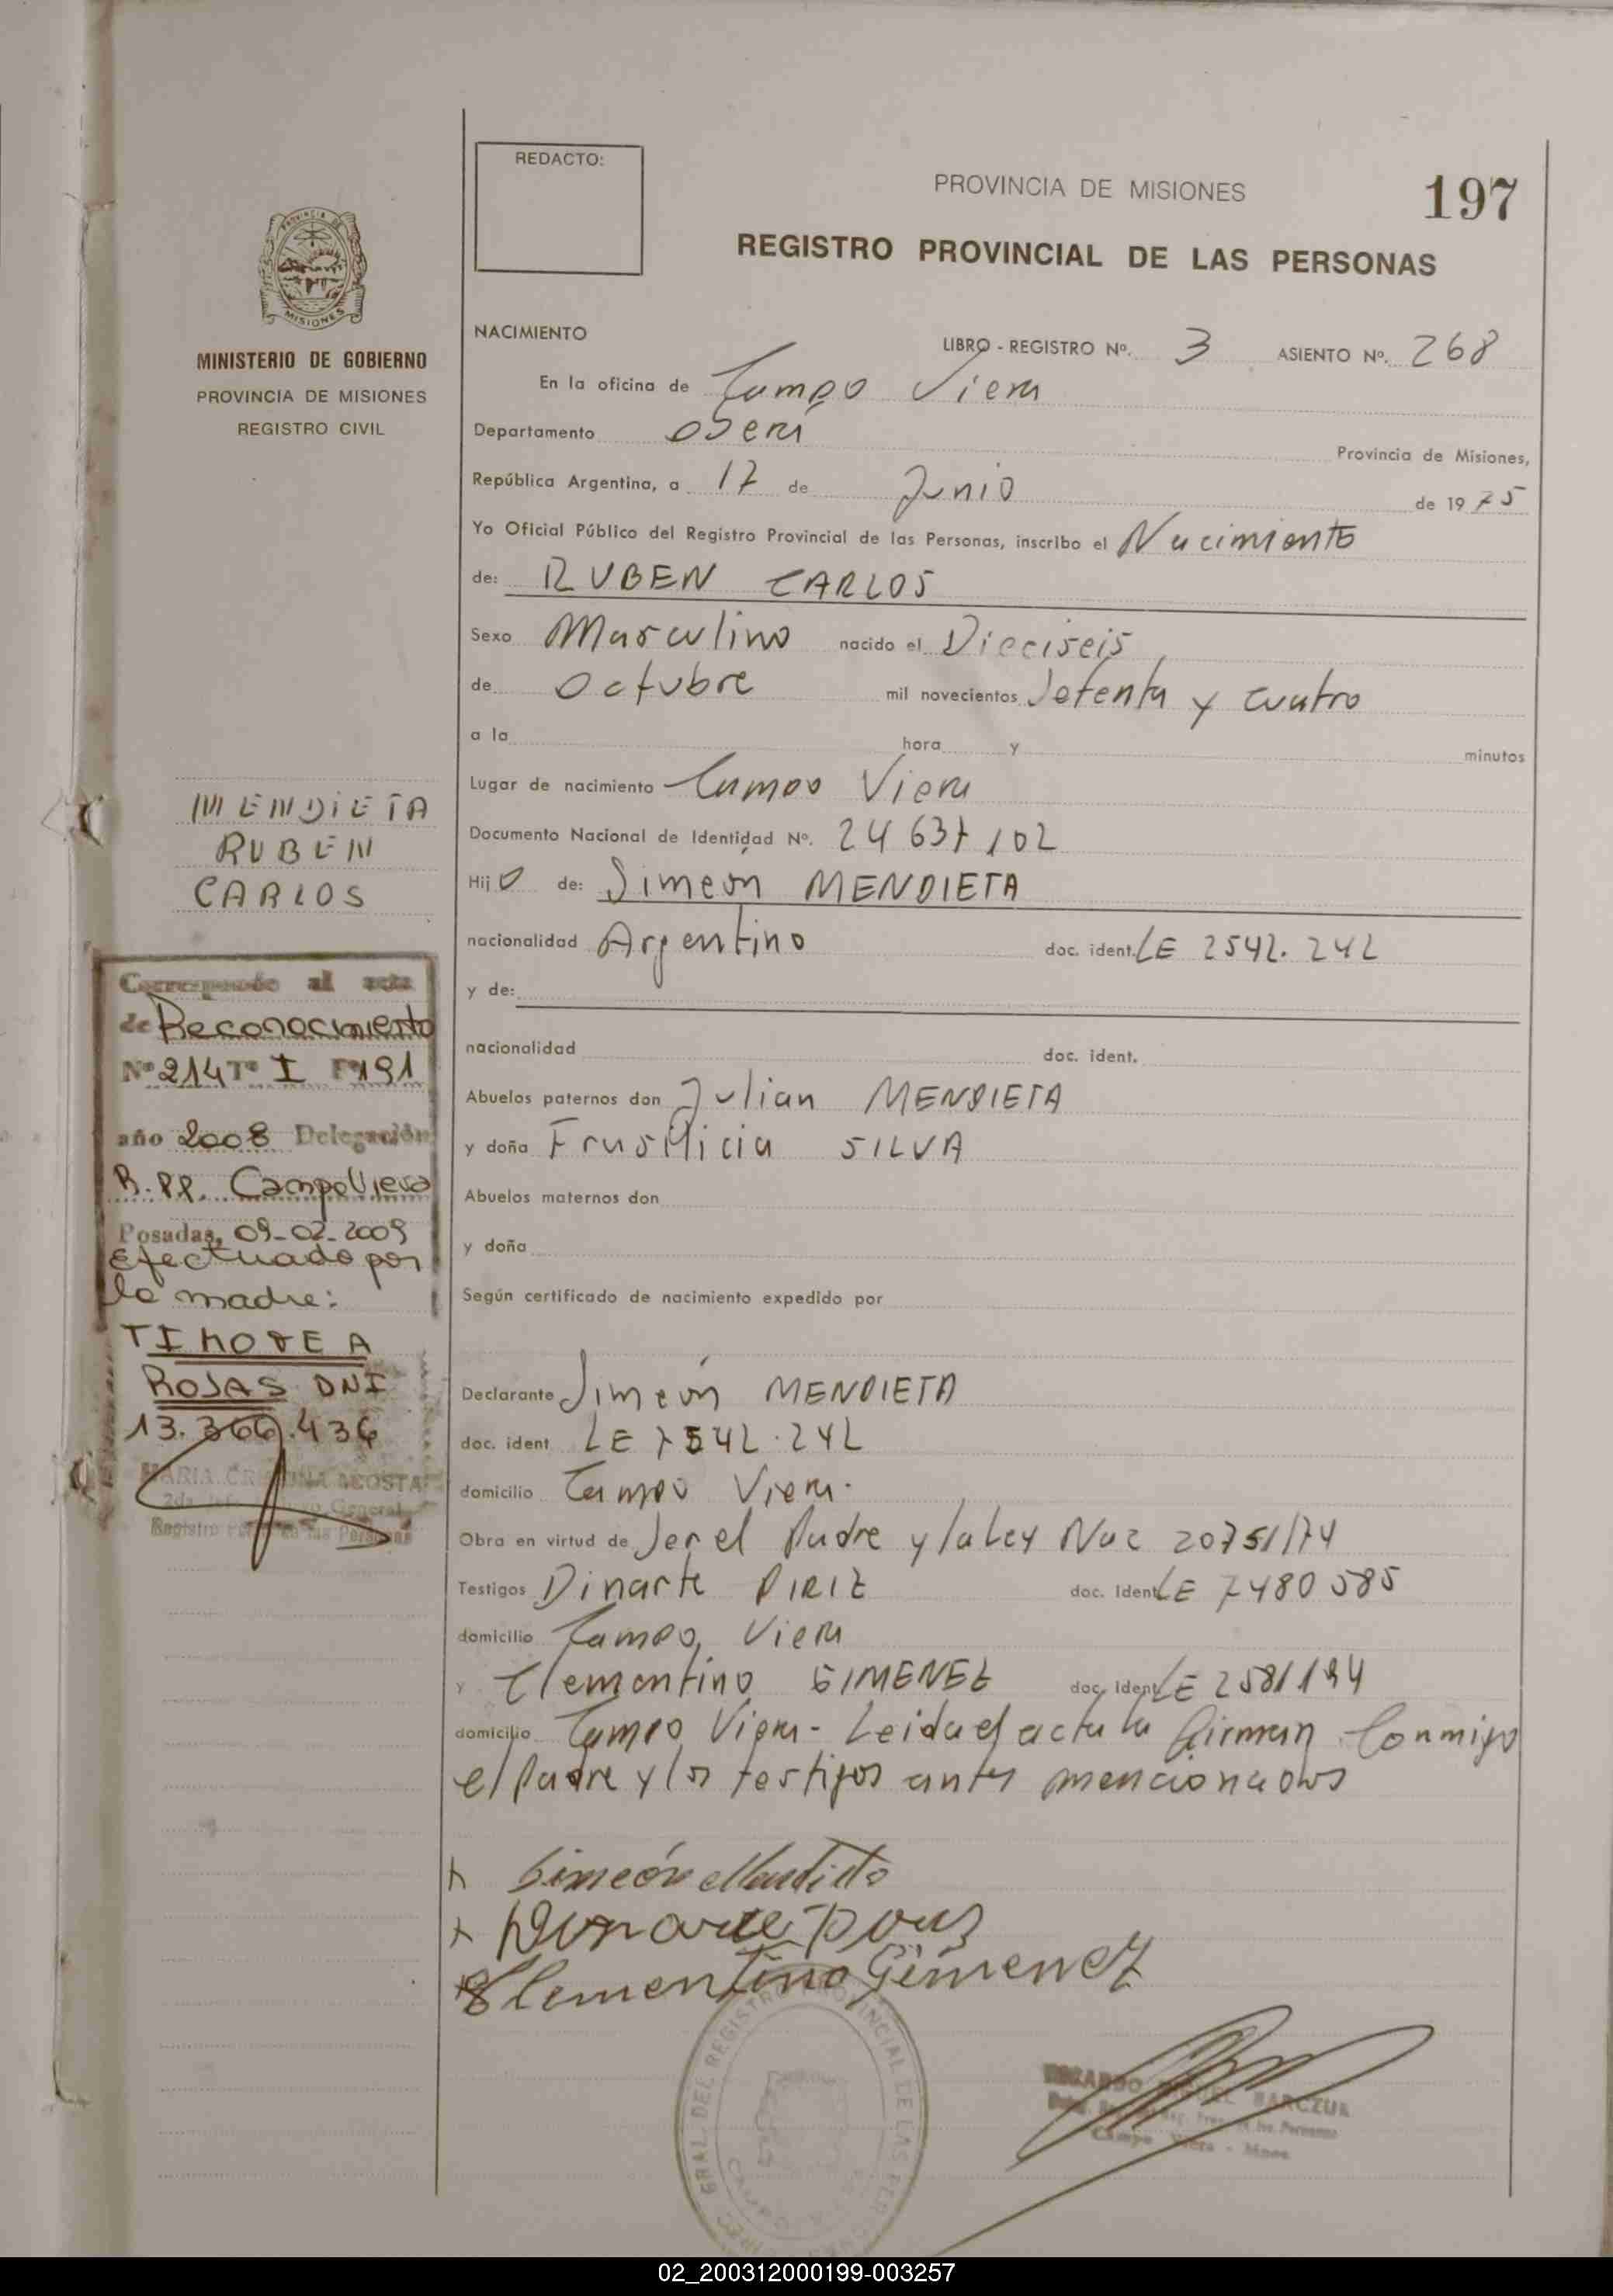 REDACTO:
PROVINCIA DE MISIONES
197
REGISTRO PROVINCIAL DE LAS PERSONAS
MISIONES
MINISTERIO DE GOBIERNO
PROVINCIA DE MISIONES
REGISTRO CIVIL
NACIMIENTO
LIBRO - REGISTRO Nº. 3 ASIENTO Nº. 268
En la oficina de Campo Viera
Departamento Oberá
Provincia de Misiones,
República Argentina, a 17 de Junio de 1975
Yo Oficial Público del Registro Provincial de las Personas, inscribo el Nacimiento
de: RUBEN CARLOS
Sexo Masculino nacido el Dieciseis
de Octubre mil novecientos Setenta y cuatro
a la hora y minutos
Lugar de nacimiento Campo Viera
Documento Nacional de Identidad Nº. 24 637 102
Hijo de: Simeón MENDIETA
nacionalidad Argentino doc. ident. LE
y de:
nacionalidad doc. ident.
Abuelos paternos don Julian MENDIETA
y doña SILVA
Abuelos maternos don
y doña
Según certificado de nacimiento expedido por
Declarante Simeón MENDIETA
doc. ident LE 7542.242
domicilio Campo Viera.
Obra en virtud de Ser el Padre y la Ley Nac 20751/74
Testigos Dinarte PIRIZ doc. Ident LE 7480585
domicilio Campo Viera
y Clementino GIMENEZ doc. Ident LE
domicilio Campo Viera - Leida el acta la firman Conmigo
el Padre y los testigos antes mencionados
Simeón Mendieta
Clementino Gimenez
MENDIETA
RUBEN
CARLOS
Corresponde al acta
de Reconocimiento
Nº 214 Tº I Fº 191
año 2008 Delegación
R.PP. Campo Viera
Posadas, 09-02-2009
Efectuado por
la madre:
TIMOTEA
ROJAS DNI
13.366.436
MARIA CRISTINA ACOSTA
02_200312000199-003257